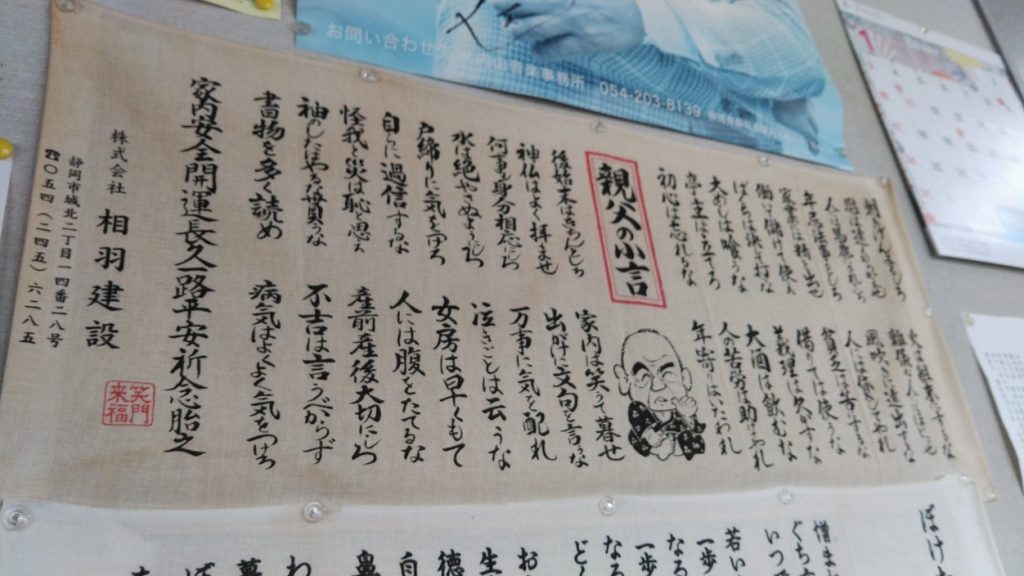 お問い合わせ
音楽事務所 054-203-8139
1
親父の小言
朝きげんよくしろ
人には馬鹿にされていろ
年忌法事をしろ
家業には精を出せ
働いて儲けて使え
ばくちは決して打つな
大めしは喰うな
亭主はたてろ
初心は忘れるな
火は粗末にするな
難渋な人にほどこせ
風吹きに遠出するな
人には貸してやれ
貧乏は苦にするな
借りては使うな
義理は欠かすな
大酒は飲むな
人の苦労は助けてやれ
年寄りはいたわれ
後始末はきちんとしろ
神仏はよく拝ませ
何事も身分相応にしろ
水は絶やさぬようにしろ
戸締りに気をつけろ
自らに過信するな
怪我と災は恥と思え
書物を多く読め
家内は笑うて暮せ
出がけに文句を言うな
万事に気を配れ
泣きごとは云うな
女房は早くもて
人には腹をたてるな
産前産後大切にしろ
不吉は言うべからず
病気はよくよく気をつけろ
家内安全開運長久一路平安祈念貽之
株式会社 相羽建設
静岡市城北二丁目一四番二八号
☎〇五四(二四五)六二八五
笑門来福
ぼけ
憎ま
ぐち
いつ
若い
一歩
なる
一歩
なる
お
生
徳
自
鼻
わ